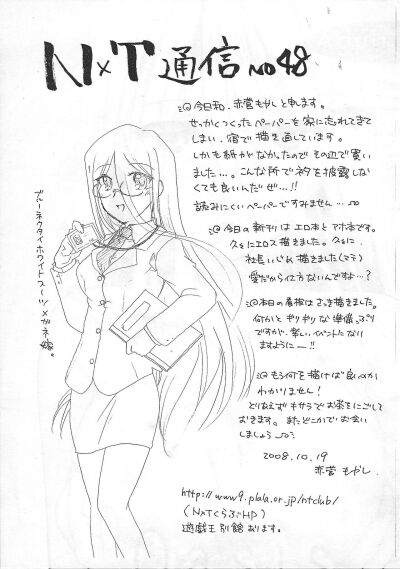 N×T通信 No48
今日和、赤萱もやしと申します。
せっかくつくったペーパーを家に忘れてきて
しまい、宿で描き直しています。
しかも紙がなかったのでその辺で買い
ました…。こんな所でネタを披露しな
くても良いんだぜ…!!
読みにくいペーパーですみません…
今日の新刊はエロ本とアホ本です。
久々にエロス描きました。久々に、
社長いじめ描きました(マテ)
愛だから仕方ないんですよ…?
本日の看板はさっき描きました。
何かとギリギリな準備っぷり
ですが、楽しいイベントになり
ますようにー!!
もう何を描けば良いのか
わかりません!
とりあえずキサラでお茶をにごして
おきます。またどこかでお会い
しましょう
2008.10.19
赤萱もやし.
http://www9.plala.or.jp/ntclub/
(N×TくらぶHP)
遊戯王別館あります。
ブルーネクタイホワイトスーツメガネ嫁。